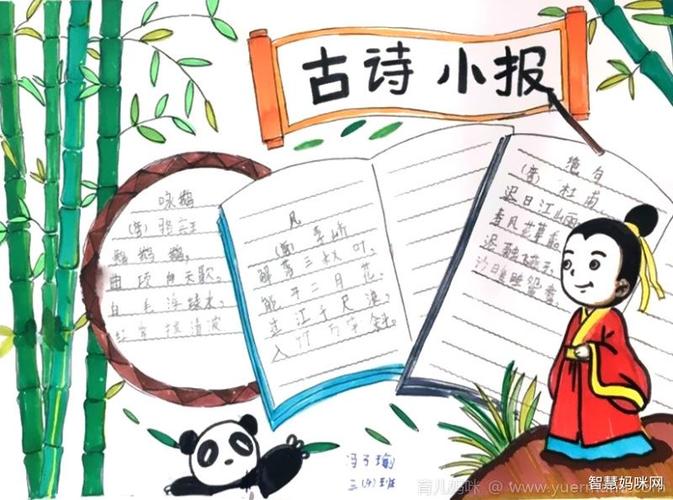 古诗 小报
咏鹅
(唐) 骆宾王
鹅 鹅 鹅,
曲项向天歌。
白毛浮绿水,
红掌拨清波
风
(唐) 李峤
解落三秋叶,
能开二月花,
过江千尺浪,
入竹万竿斜。
绝句
(唐) 杜甫
迟日江山丽
春风花草香。
泥融飞燕子,
沙暖睡鸳鸯。
冯子瑜
三(4)班
育儿妈咪 @ www.yuermami.com
智慧妈咪网